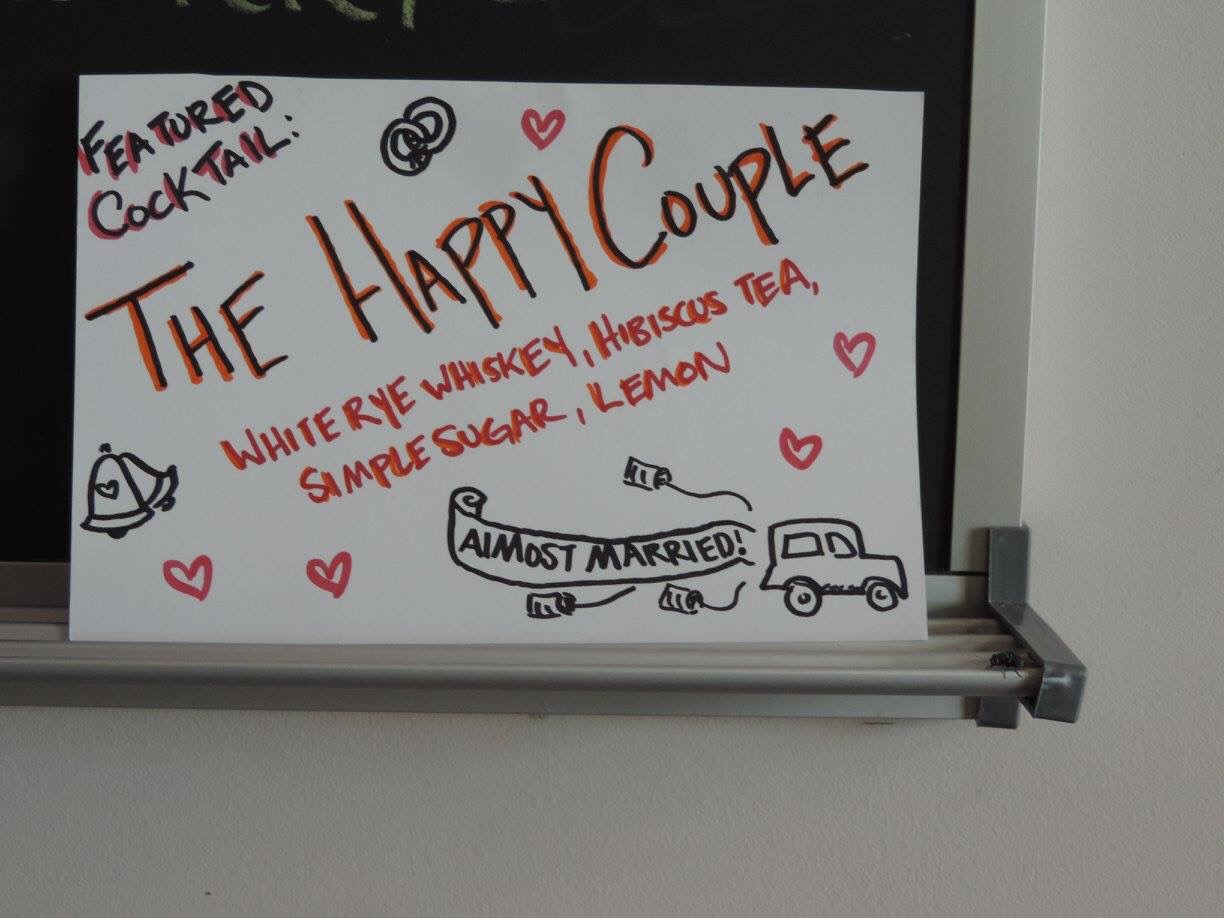 FEATURED
COCKTAIL:
THE HAPPY COUPLE
WHITE RYE WHISKEY, HIBISCUS TEA,
SIMPLE SUGAR, LEMON
ALMOST MARRIED!